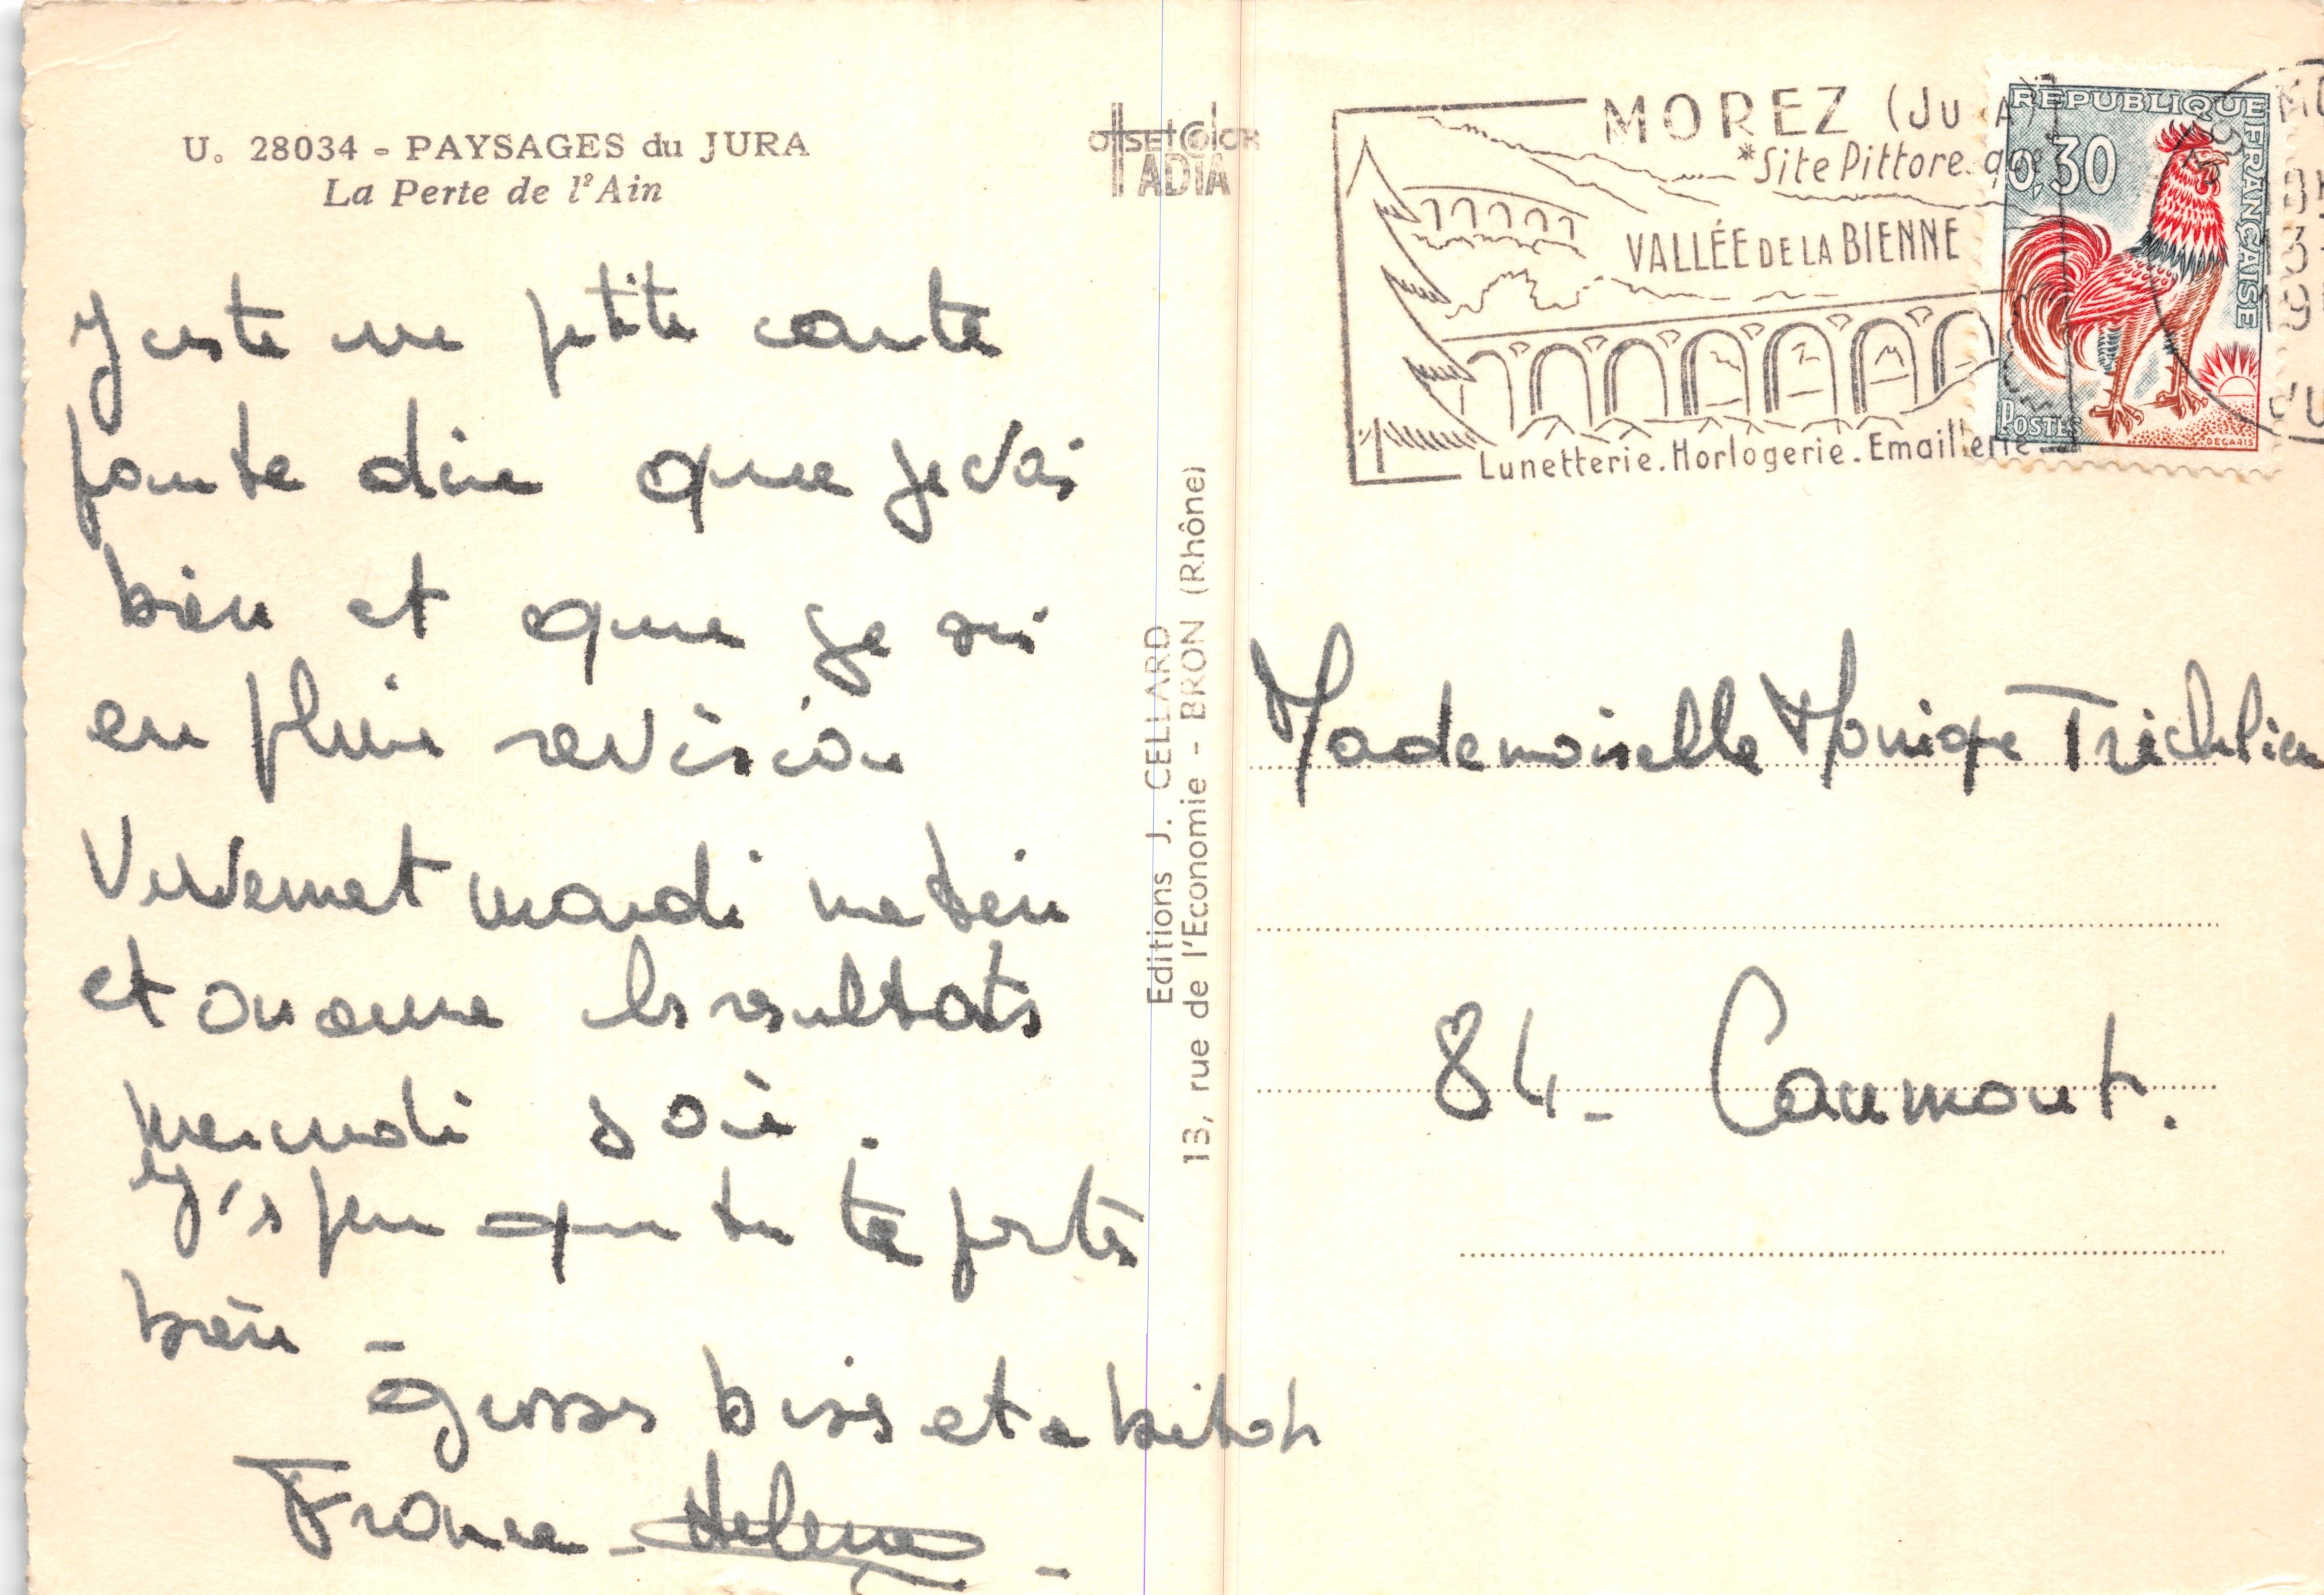 U. 28034 - PAYSAGES du JURA
La Perte de l'Ain
offset color
ADIA
Juste une petite carte
pour te dire que je vai
bien et que je sui
en pleine revision
Vivement mardi matin
et on aura les resultats
mercredi soir.
J'espere que tu te portes
bien -
Grosses bises et a bitot
France - Helene -
Editions J. CELLARD
13, rue de l'Economie - BRON (Rhône)
MOREZ (JU A)
*Site Pittore que
VALLÉE DE LA BIENNE
Lunetterie. Horlogerie. Emaillerie
REPUBLIQUE FRANÇAISE
0,30
POSTES
DECARIS
Mademoiselle Monique
84 - Caumont.